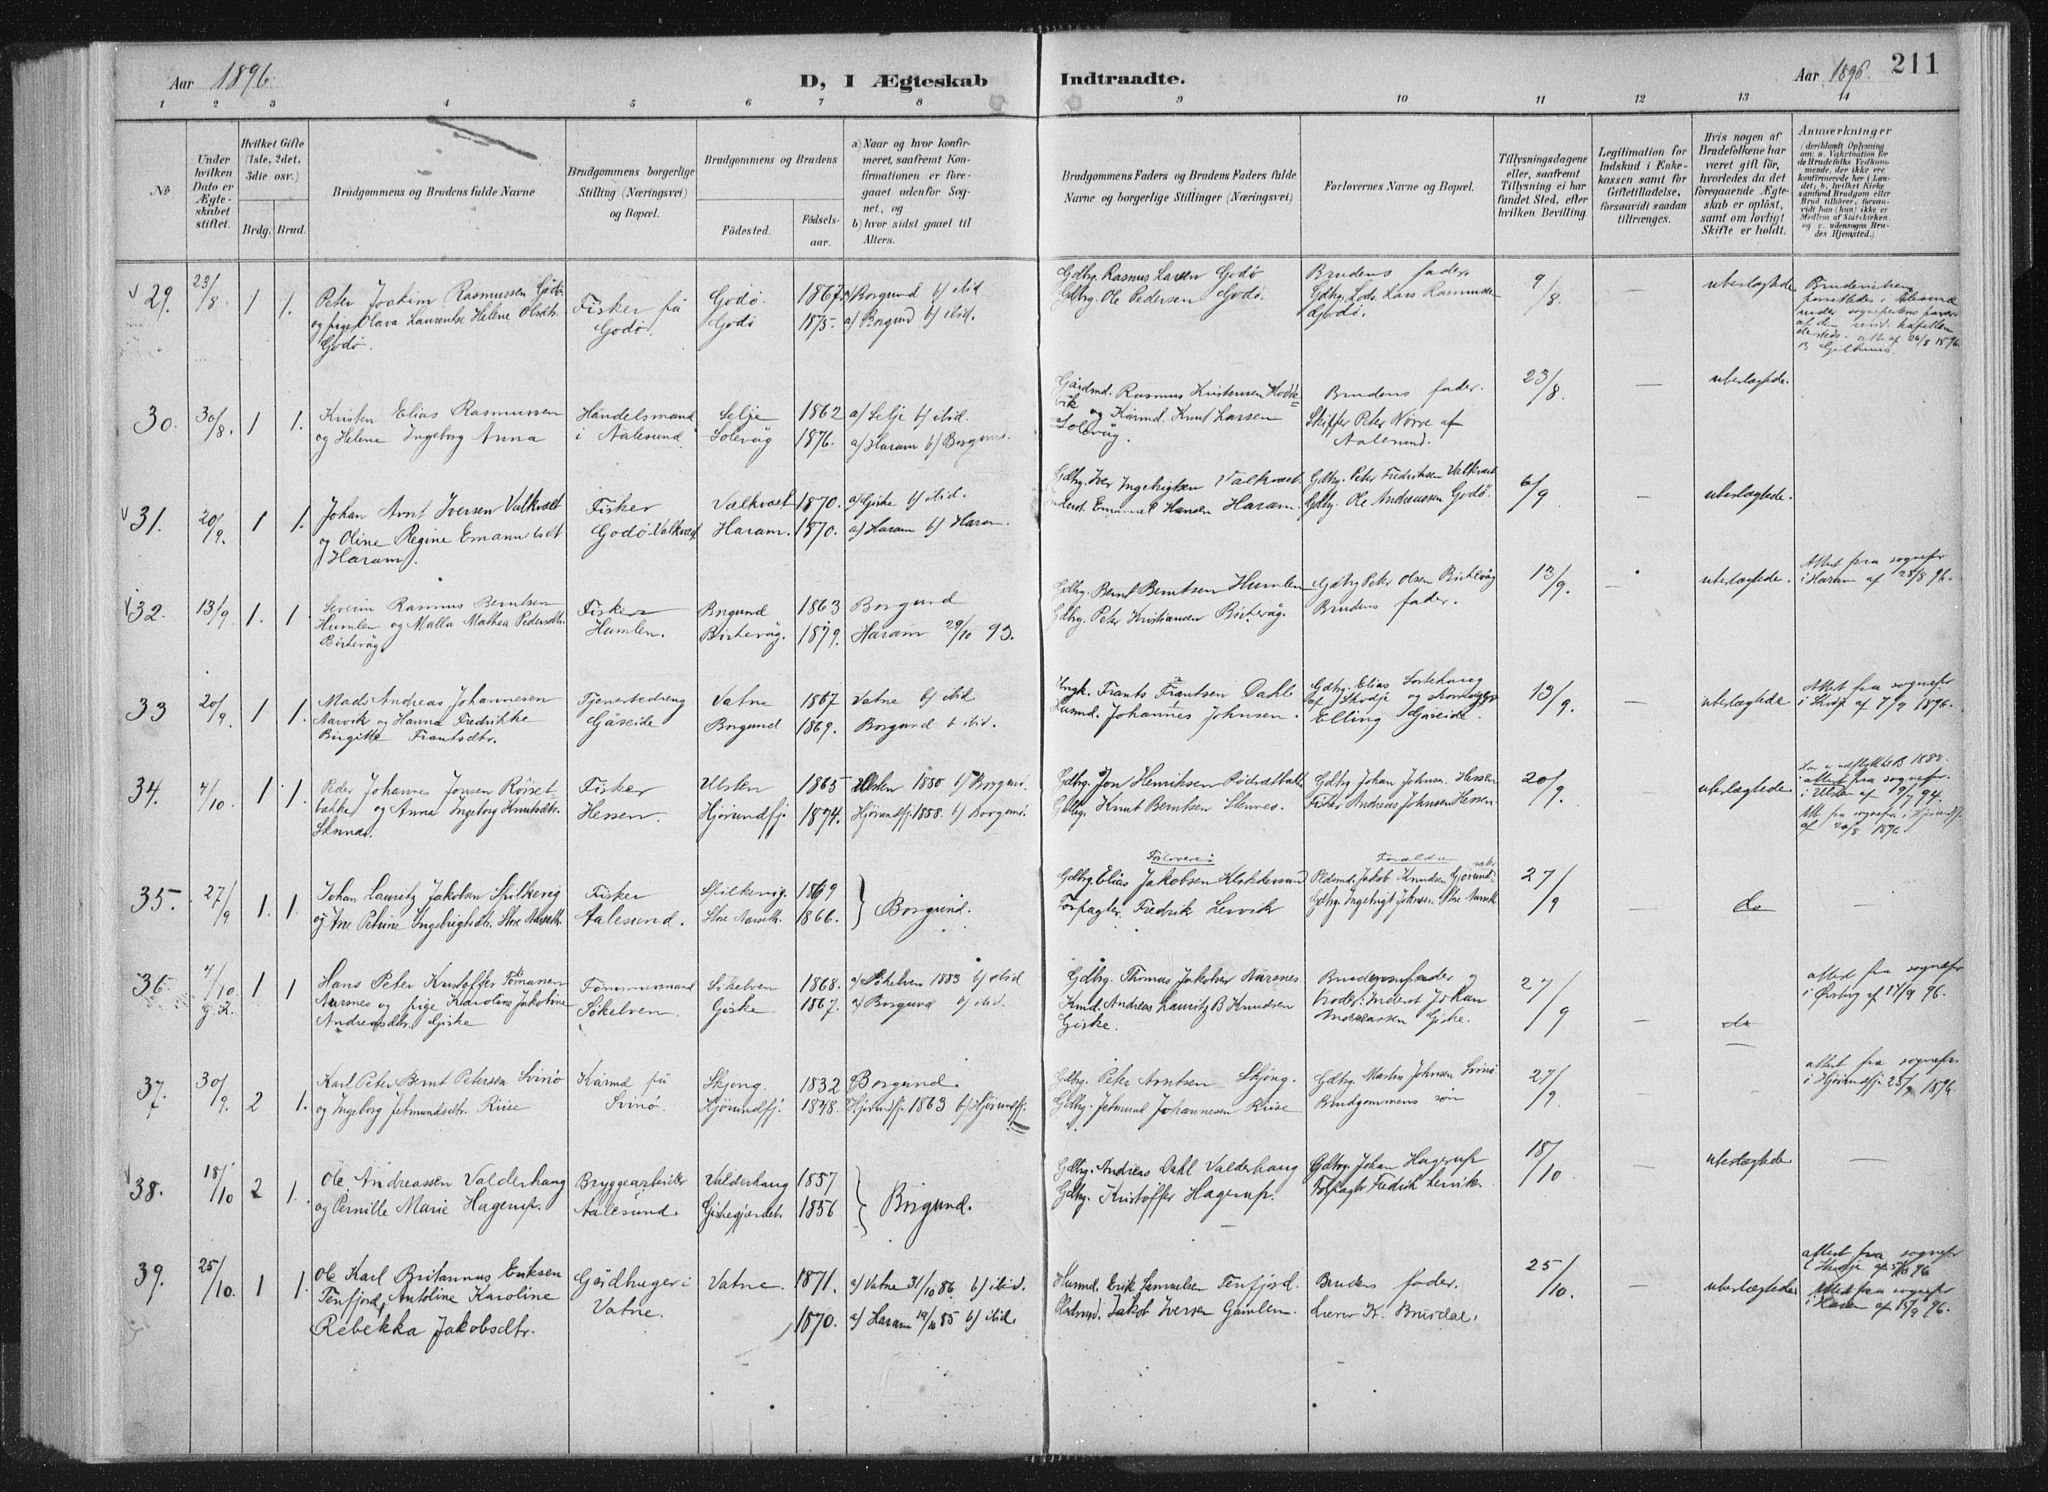 Aar 1896.
D, I Ægteskab Indtraadte.
Aar 1896. 211
1 2 3 4 5 6 7 8 9 10 11 12 13 14
No
Under hvilken Dato er Ægteskabet stiftet.
Hvilket Gifte (1ste, 2det, 3die osv.)
Brdg. Brud.
Brudgommens og Brudens fulde Navne
Brudgommens borgerlige Stilling (Næringsvei) og Bopæl.
Brudgommens og Brudens
Födested. Födselsaar.
a) Naar og hvor konfirmeret, saafremt Konfirmationen er foregaaet udenfor Sognet, og
b) hvor sidst gaaet til Alters.
Brudgommens Faders og Brudens Faders fulde Navne og borgerlige Stillinger (Næringsvei)
Forlovernes Navne og Bopæl.
Tillysningsdagene eller, saafremt Tillysning ei har fundet Sted, efter hvilken Bevilling
Legitimation for Indskud i Enkekassen samt for Giftetilladelse, forsaavidt saadan tiltrænges.
Hvis nogen af Brudefolkene har været gift för, hvorledes da det foregaaende Ægteskab er oplöst, samt om lovligt Skifte er holdt.
Anmærkninger (deriblandt Oplysning om: a. Vaksination for de Brudefolks Vedkommende, der ikke ere konfirmerede her i Landet; b. hvilket Kirkesamfund Brudgom eller Brud tilhörer, forsaavidt han (hun) ikke er Medlem af Statskirken, og c. udensogns Brudes Hjemsted.)
29. 23/8. 1 1.
Peter Joachim Rasmussen Godø
og pige Olava Laurentse Helene Olsdtr.
Godø.
Fisker på Godø.
Godø. 1867. a/ Borgund b/ ibid
Godø 1875. a/ Borgund b/ ibid.
Gdbrg. Rasmus Larsen Godø
Gdbrg. Ole Pedersen Godø.
Brudens fader
Gdbrg. Lars Rasmussen
Godø.
9/8.
ubeslægtede
30. 30/8. 1 1.
Kristen Elias Rasmussen
og Helene Ingeborg Anna
Handelsmand
i Aalesund.
Selje 1862 a/ Selje b/ ibid.
Solevåg 1876. a/ Haram b/ Borgund.
Gårdmd. Rasmus Kristensen
og Kårmd. Knut Larsen
Solevåg.
Brudens fader.
Skipper Peter Nørve af
Aalesund.
23/8. — ubeslægtede.
31. 20/9. 1 1.
Johan Arnt Iversen Valkvæt
og Oline Regine Emanuelsdt
/Haram/.
Fisker
Godø-Valkvæt
Valkvæt 1870. a/ Giske b/ ibid.
Haram. 1870. a/ Haram b/ Haram.
Gdbrg. Iver Ingebrigtsen Valkvæt
Emanuel Hansen Haram.
Gdbrg. Peter Fredriksen Valkvæt
Gdbrg. Ole Andreassen Godø.
6/9 — ubeslægtede.
32. 13/9. 1. 1.
Severin Rasmus Berntsen
Humlen og Malla Mathea Pedersdtr.
Bistevåg.
Fisker
Humlen.
Borgund 1863 Borgund
Bistevåg. 1879. Haram 29/10 93.
Gdbrg. Bernt Berntsen Humlen
Gdbrg. Peter Kristiansen Bistevåg.
Gdbrg Peter Olsen Bistevåg
Brudens fader.
13/9. — ubeslægtede.
Attest fra sognepr
i Haram af 28/8 96.
33 20/9. 1 1.
Mads Andreas Johannesen
Aarvik og Hanna Fredrikke
Birgitte Frantsdtr.
Tjenestedreng
Gåseide
Vatne 1867 Vatne b/ ibid
Borgund 1869. Borgund b ibid.
Frants Frantsen Dahl
Husmd. Johannes Johnsen.
Gdbrg. Elias
af Skodje og
Elling Gåseide.
13/9. — ubeslægtede
Attest fra sognepr.
i Skodje af 7/9 1896.
34. 4/10. 1. 1.
Peder Johannes Jonsen Rörset
bakke og Anna Ingeborg Knutsdtr.
Sknnæs.
Fisker
Hessen.
Ulsten 1865 Ulsten 1880 b/ Borgund.
Hjörundfj. 1874. Hjörundfj. 1858. b/ Borgund.
Gdbrg. Jon Henriksen
Gdbrg. Knut Berntsen
Gdbrg. Johan Johnsen Hessen
Fisker Andreas Johnsen Hessen
20/9. — ubeslægtede
attest fra sognepr.
i Ulsten af 19/7 94.
Att. fra sognepr i Hjörundfj.
af 20/8 1896.
35. 27/9. 1. 1.
Johan Lauritz Jakobsen Spilkevig
og Ane Petrine Ingebrigtsdtr. Store Aarseth.
Fisker
Aalesund.
Spilkevig. 1869
Store Aarseth. 1866.
Borgund.
Forlovere:
Gdbrg. Elias Jakobsen
Forpagter Fredrik Lervik
Forældre
Jakob Knudsen
Gdbrg. Ingebrigt Johnsen Store Aarseth
27/9 — do —
36. 4/10 1 1
Hans Peter Kristoffer Tomasen
Aurnes og pige Karoline Jakobine
Andreasdtr. Giske
Tømmermand
Søkelven.
Søkelven 1868. a/ Søkelven 1883 b/ ibid
Giske 1867. a/ Borgund b/ ibid.
Gdbrg. Thomas Jakobsen Aurenes
Kmd. Andreas Lauritz B Knudsen
Giske.
Brudens fader og
broder Inderst Johan
Andreassen Giske.
27/9 — do
attest fra sognepr
i Ørskog af 17/9 96.
37. 30/9. 2 1.
Karl Peter Bernt Petersen Svinø
og Ingeborg Jetmundsdtr. Riise
Kårmd på
Svinø.
Skjong. 1832 Borgund.
Hjörundfj. 1848. Hjörundfj. 1863 b/ Hjörundfj.
Gdbrg. Peter Arntsen Skjong.
Gdbrg. Jetmund Johannesen Riise
Gdbrg. Martin Johnsen Svinø
Brudgommens søn
27/9 —
attest fra sognepr.
i Hjörundfj. 25/9 1896.
38. 18/10 2 1.
Ole Andreassen Valderhaug
og Pernille Marie Hagerup.
Bryggearbeider
Aalesund.
Valderhaug 1857
Giskegjerdet. 1856
Borgund.
Gdbrg. Andreas Dahl Valderhaug
Gdbrg. Kristoffer Hagerup.
Gdbrg. Johan Hagerup
Forpagter Fredrik Lervik.
18/10 — ubeslægtede —
39. 25/10. 1 1.
Ole Karl Britannus Eriksen
Tenfjord, Antoline Karoline
Rebekka Jakobsdtr.
Gårdbruger i
Vatne.
Vatne 1871. a/ Vatne 31/10 86 b/ ibid.
1870. a/ Haram 14/10 85 b/ ibid.
Husmd. Erik Samuelsen Tenfjord.
Pladsmd. Jakob Iversen Gamlem.
Brudens fader.
Lærer K. Brusdal.
25/10. — ubeslægtede
attest fra sognepr
i Skodje af 5/10 96
Attest fra sognepr
i Haram af 15/9 96.